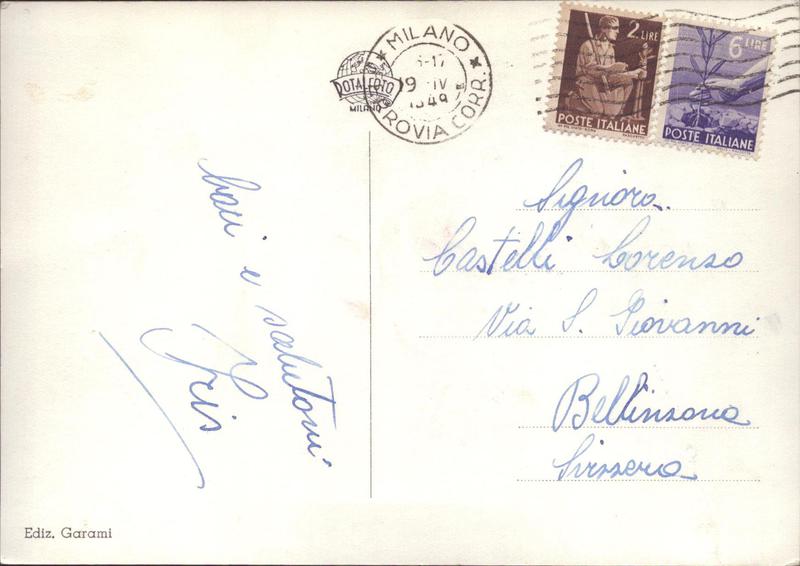 MILANO
19 IV
1949
ROVIA CORR.
ROTALFOTO
MILANO
2 LIRE
POSTE ITALIANE
6 LIRE
POSTE ITALIANE
Baci e salutoni
Iris
Signora
Castelli Lorenzo
Via S. Giovanni
Bellinzona
Svizzera
Ediz. Garami